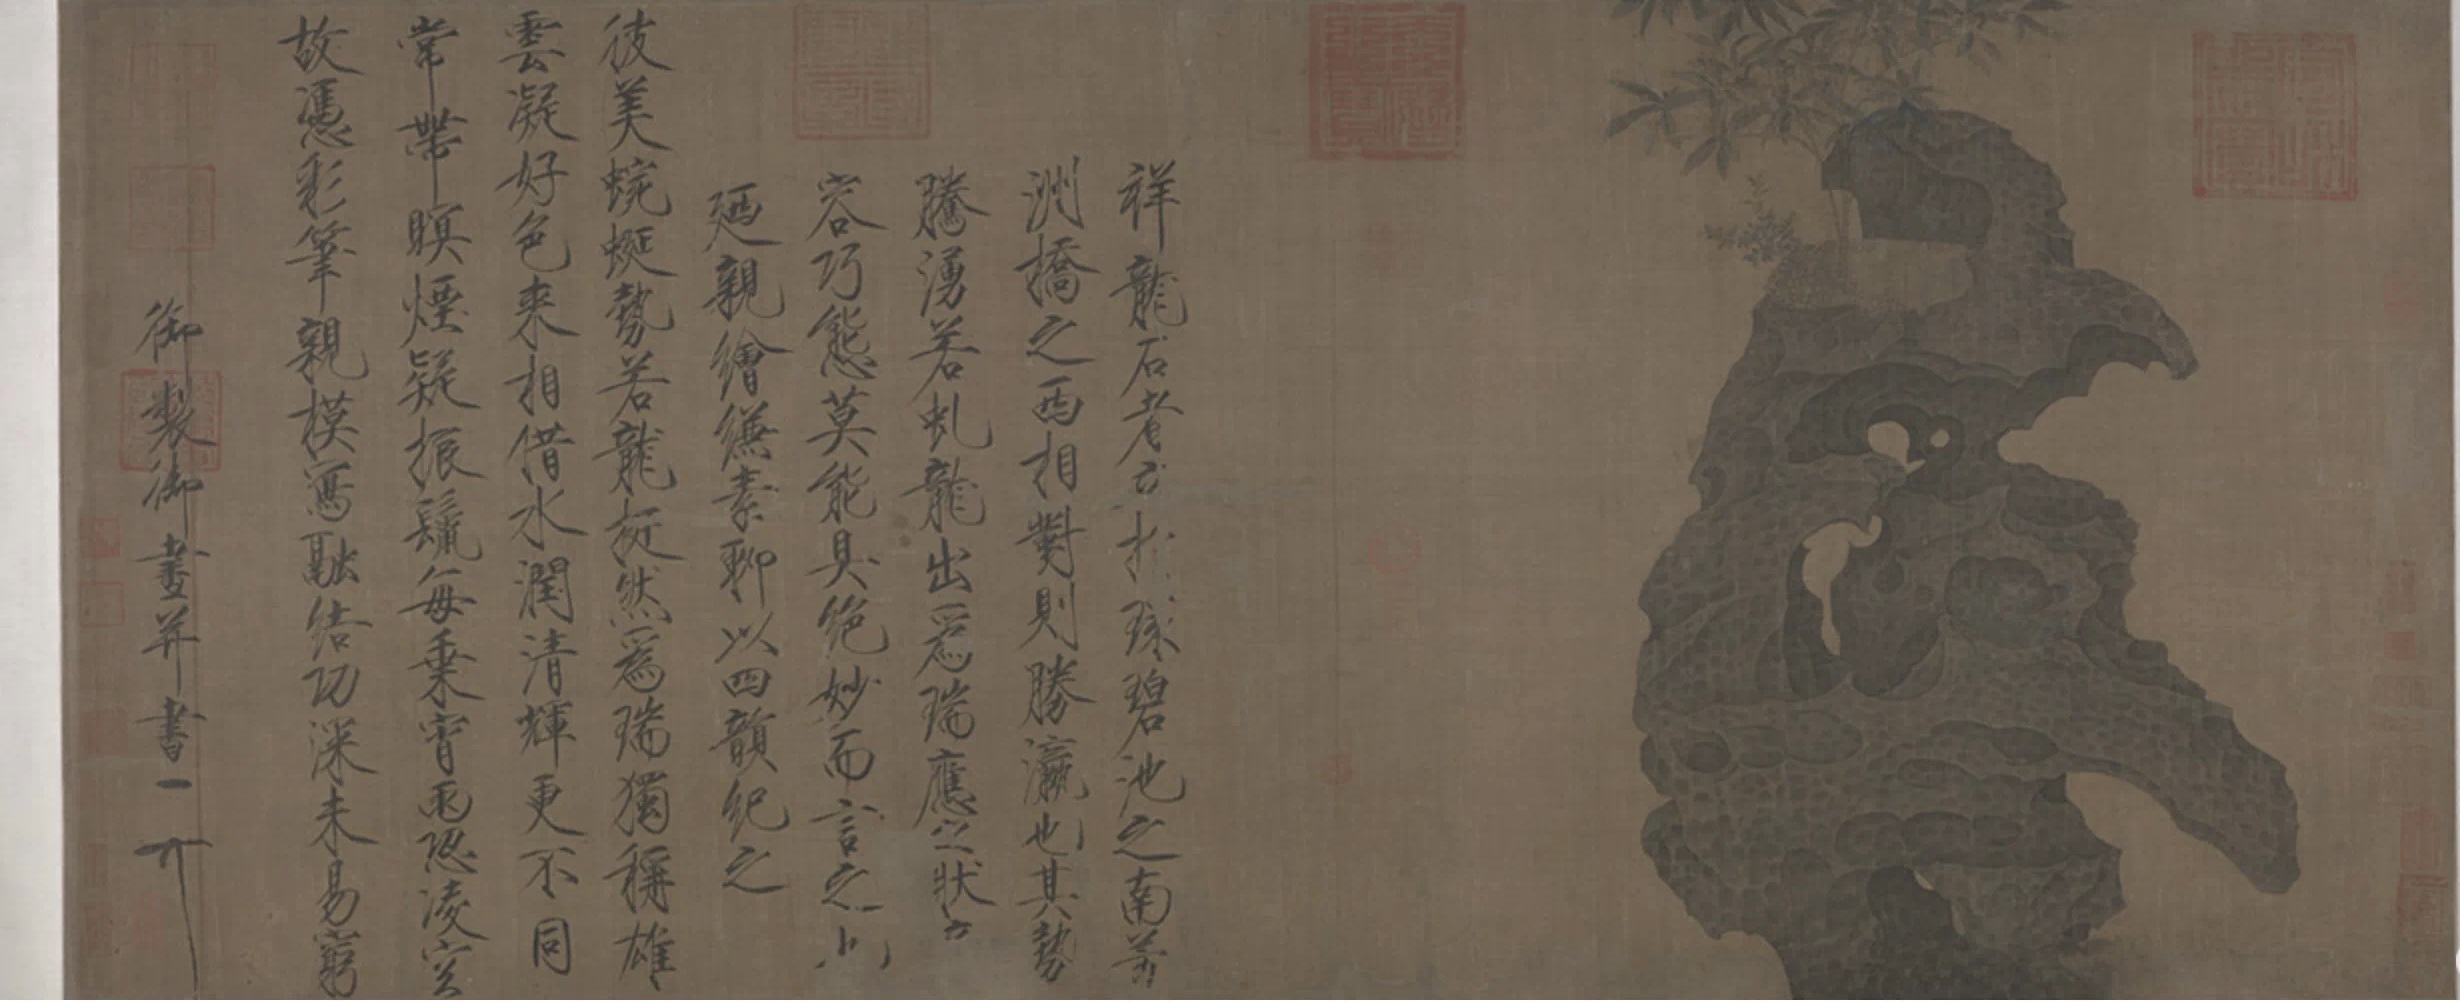 祥龍石者立於環碧池之南芳
洲橋之西相對則勝瀛也其勢
騰湧若虬龍出爲瑞應之狀奇
容巧態莫能具絶妙而言之也
廼親繪縑素聊以四韻紀之
彼美蜿蜒勢若龍挺然爲瑞獨稱雄
雲凝好色來相借水潤清輝更不同
常帶暝煙疑振鬣每乗宵雨恐凌空
故憑彩筆親模寫融結功深未易窮
御製御畫并書